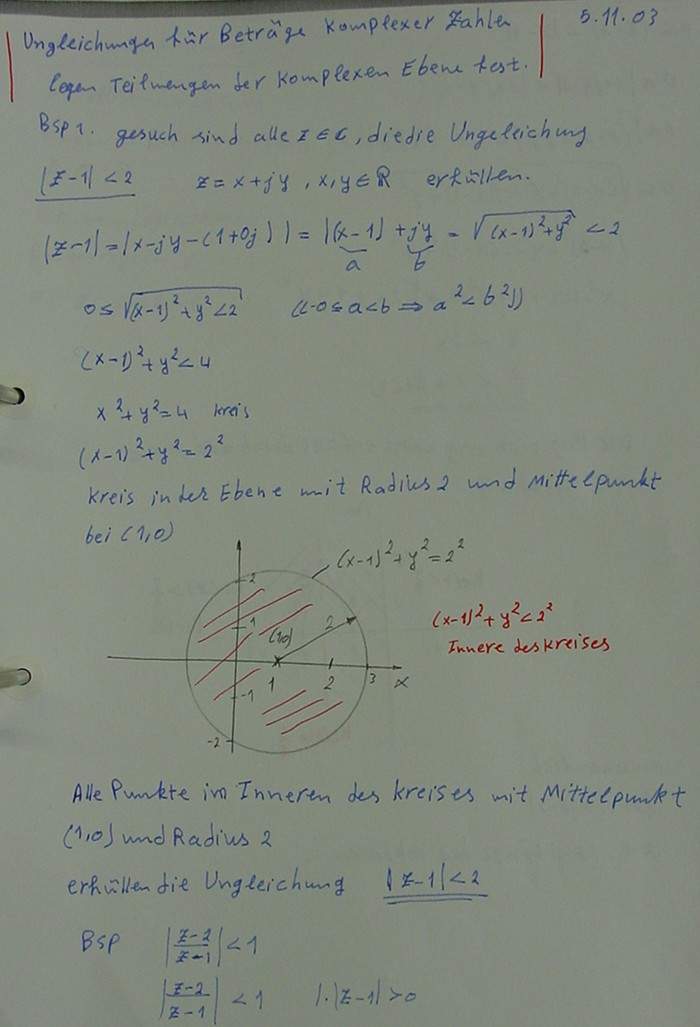 Ungleichungen für Beträge komplexer Zahlen 5.11.03
legen Teilmengen der komplexen Ebene fest.
Bsp 1. gesuch sind alle z ∈ ℂ, die die Ungeleichung
|z-1| < 2 z = x + jy , x,y ∈ ℝ erfüllen.
|z-1| = |x-jy-(1+0j)| = |(x-1) + jy = √((x-1)²+y²) < 2
a b
0 ≤ √((x-1)²+y² < 2) ((0 ≤ a < b ⇒ a² < b²))
(x-1)² + y² < 4
x² + y² = 4 Kreis
(x-1)² + y² = 2²
Kreis in der Ebene mit Radius 2 und Mittelpunkt
bei (1,0)
(x-1)² + y² = 2²
2
1
(1,0)
2
(x-1)² + y² < 2²
Innere des Kreises
1 2 3 x
-1
-2
Alle Punkte im Inneren des Kreises mit Mittelpunkt
(1,0) und Radius 2
erfüllen die Ungleichung |z-1| < 2
Bsp |(z-2)/(z-1)| < 1
|(z-2)/(z-1)| < 1 |·|z-1| > 0